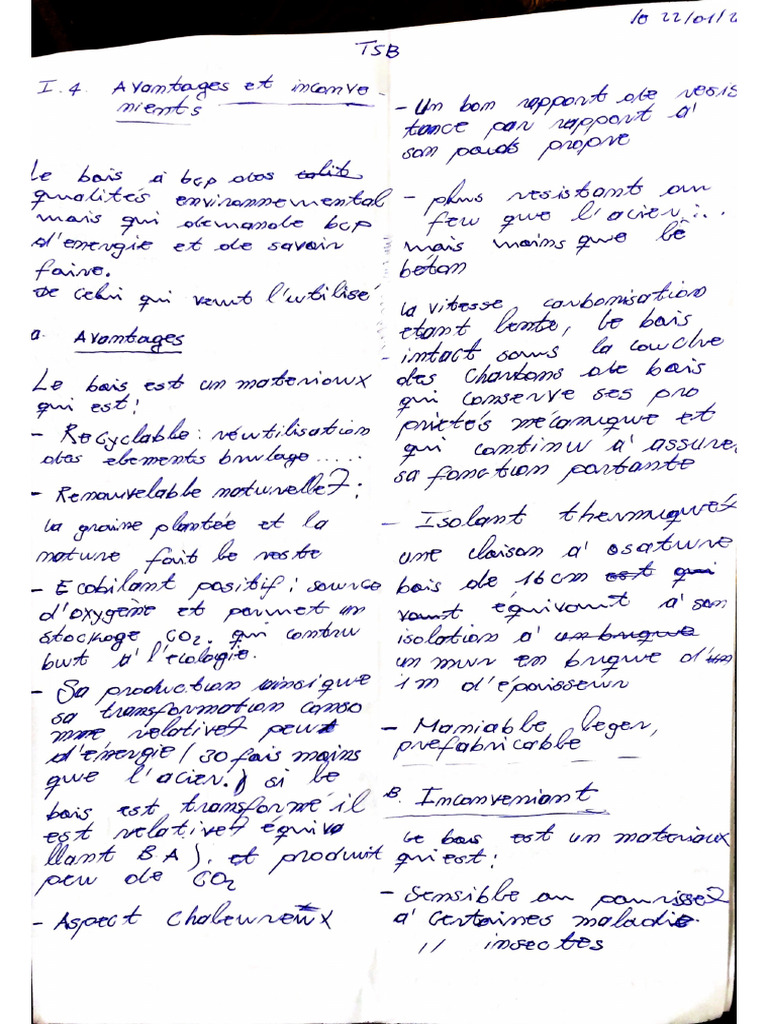 le 22/01/2
TSB
I.4. Avantages et inconve-
nients
Le bois à bcp des
qualités environnemental
mais qui demande bcp
d'energie et de savoir
faire.
De celui qui veut l'utilisé
a. Avantages
Le bois est un materioux
qui est:
- Recyclable: réutilisation
des elements brulage.....
- Renouvelable naturelle7:
la graine plantée et la
nature fait le reste
- Ecobilant positif: source
d'oxygène et permet un
stockage CO2. qui contru
but à l'écologie.
- Sa production ainsi que
sa transformation conso
mme relative7 peu
d'énergie (30 fois moins
que l'acier.) si le
bois est transformé il
est relative7 équiva
llant B.A). et produit
peu de CO2
- Aspect chaleureux
- Un bon rapport de resis
tance par rapport à
son poids propre
- plus resistant au
feu que l'acier...
mais moins que le
béton
la vitesse carbonisation
etant lente, le bois
intact sous la couche
des charbons de bois
qui conserve ses pro
prietés mécanique et
qui continu à assure
sa fonction portante
- Isolant thermique7
une cloison à osature
bois de 16cm est qui
vaut équivaut à son
isolation à un brique
un mur en brique d'un
1m d'épaisseur
- Maniable leger,
prefabricable
B. Inconveniant
le bois est un materioux
qui est:
- Sensible au pourisse7
à certaines maladie
// insectes